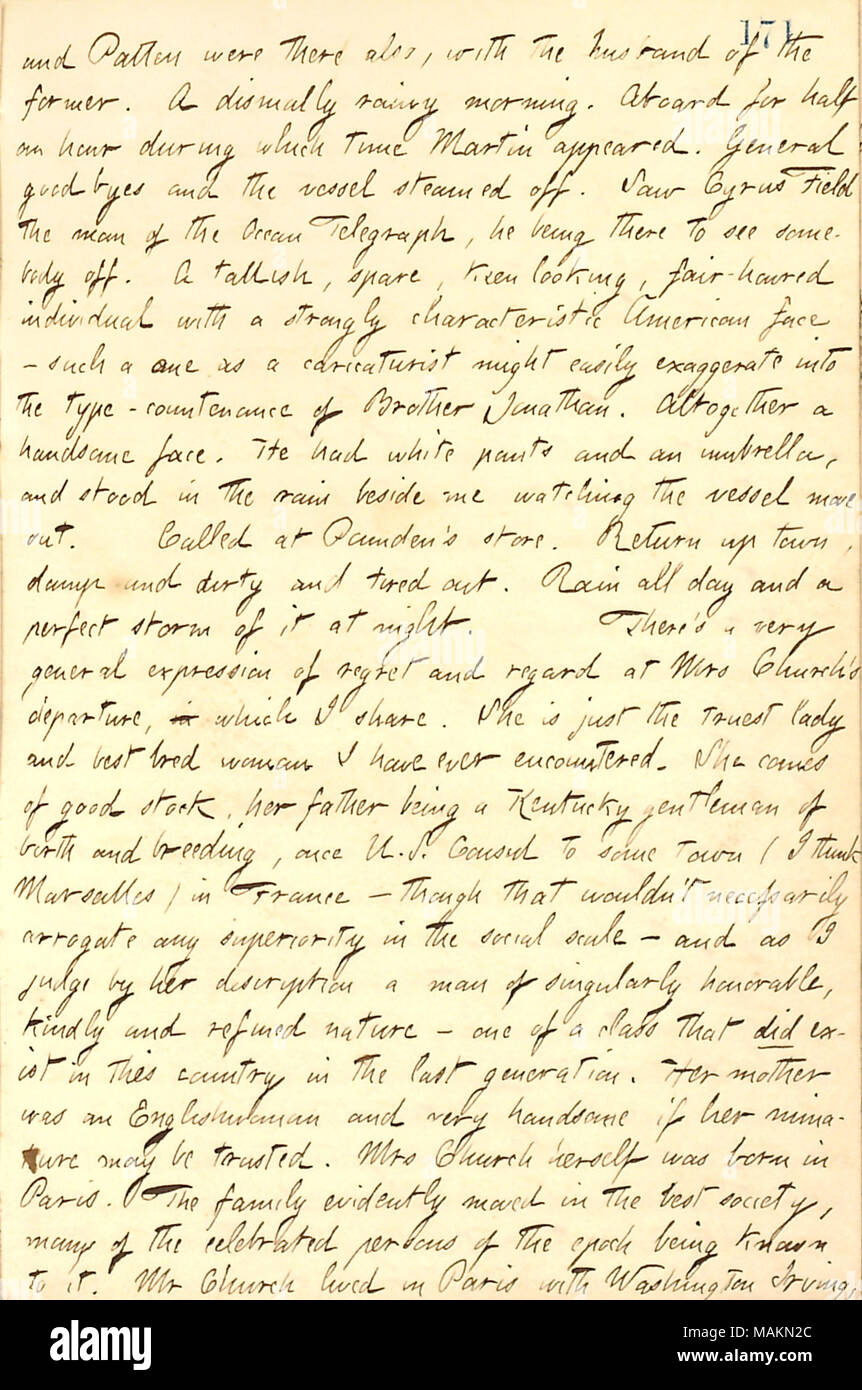 171
and Patten were there also, with the husband of the
former. A dismally rainy morning. Aboard for half
an hour during which time Martin appeared. General
good byes and the vessel steamed off. Saw Cyrus Field
the man of the Ocean Telegraph, he being there to see some-
body off. A tallish, spare, keen looking, fair-haired
individual with a strongly characteristic American face
- such a one as a caricaturist might easily exaggerate into
the type-countenance of Brother Jonathan. Altogether a
handsome face. He had white pants and an umbrella,
and stood in the rain beside me watching the vessel move
out. Called at Pounden's store. Return up town,
damp and dirty and tired out. Rain all day and a
perfect storm of it at night. There's a very
general expression of regret and regard at Mrs Church's
departure, in which I share. She is just the truest lady
and best bred woman I have ever encountered. She comes
of good stock, her father being a Kentucky gentleman of
birth and breeding, once U.S. Consul to some town (I think
Marsailles) in France - though that wouldn't necessarily
arrogate any superiority in the social scale - and as I
judge by her discription a man of singularly honorable,
kindly and refined nature - one of a class that did ex-
ist in this country in the last generation. Her mother
was an Englishwoman and very handsome if her mina-
ture may be trusted. Mrs Church herself was born in
Paris. The family evidently moved in the best society,
many of the celebrated persons of the epoch being known
to it. Mr Church lived in Paris with Washington Irving,
alamy
Image ID: MAKN2C
www.alamy.com